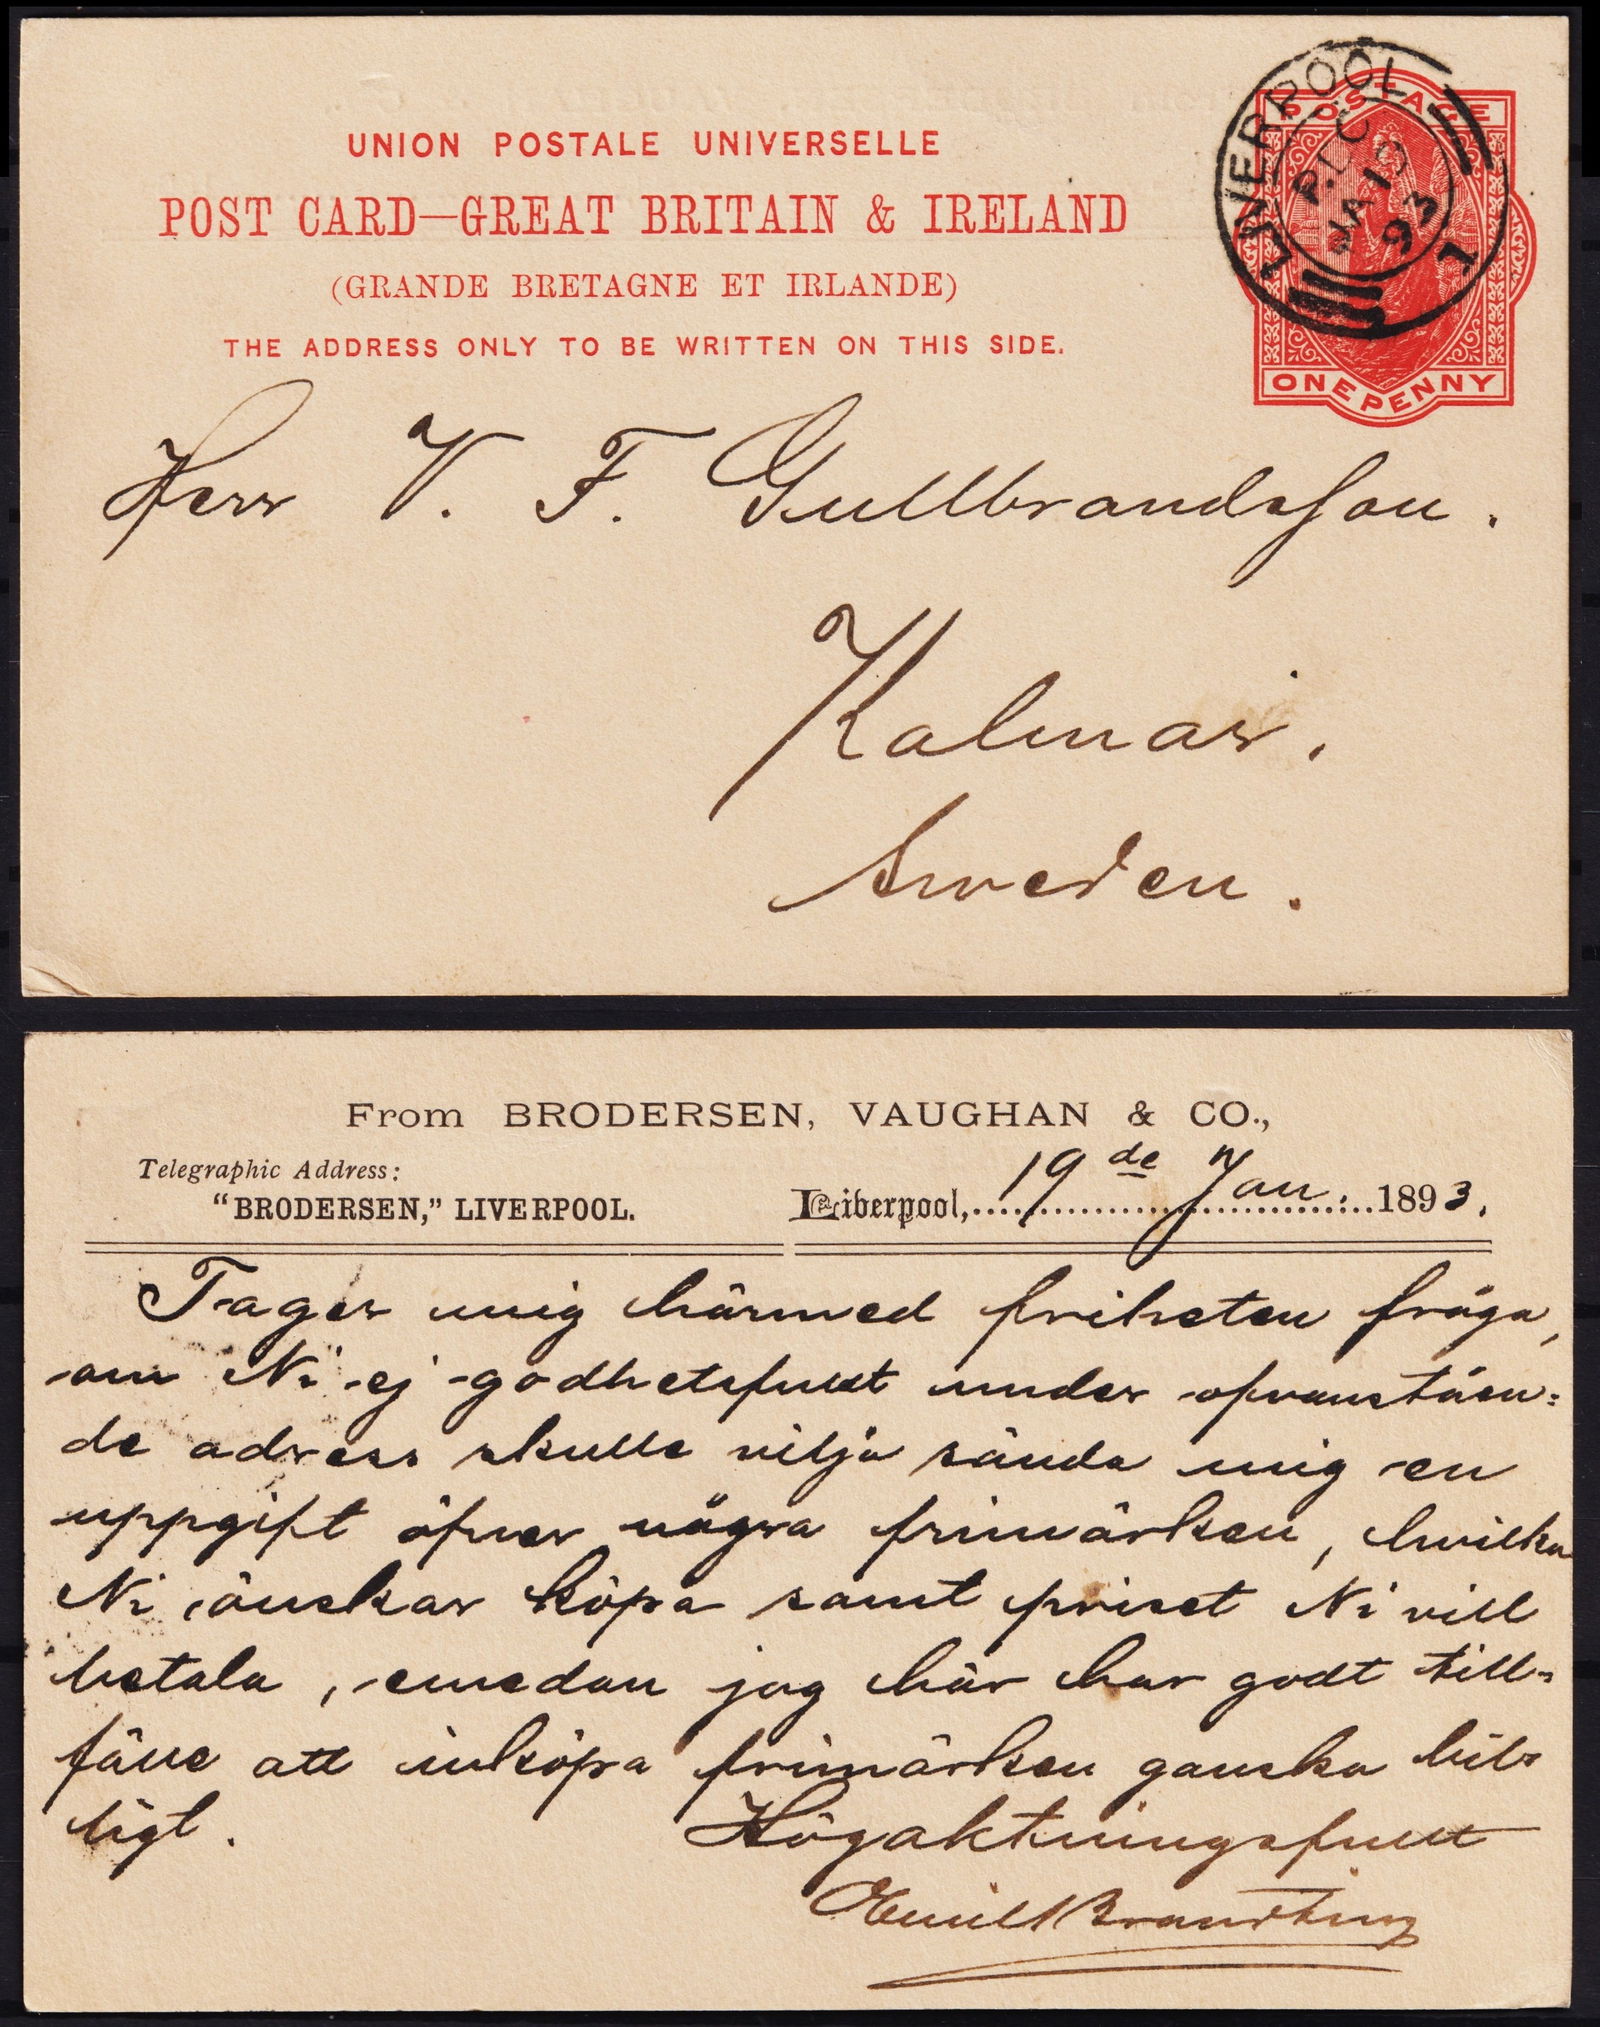 UNION POSTALE UNIVERSELLE
POST CARD—GREAT BRITAIN & IRELAND
(GRANDE BRETAGNE ET IRLANDE)
THE ADDRESS ONLY TO BE WRITTEN ON THIS SIDE.
POSTAGE
ONE PENNY
LIVERPOOL
JA 19
93
1
Herr V. F. Gullbrandsson.
Kalmar.
Sweden.
From BRODERSEN, VAUGHAN & CO.,
Telegraphic Address:
"BRODERSEN," LIVERPOOL.
Liverpool, 19 de Jan. 1893.
Tager mig härmed friheten fråga,
om Ni ej godhetsfullt under ofvanståen=
de adress skulle vilja sända mig en
uppgift öfver några frimärken, hvilka
Ni önskar köpa samt priset Ni vill
betala, emedan jag här har godt till=
fälle att inköpa frimärken ganska bil=
ligt.
Högaktningsfullt
Emil Brandting